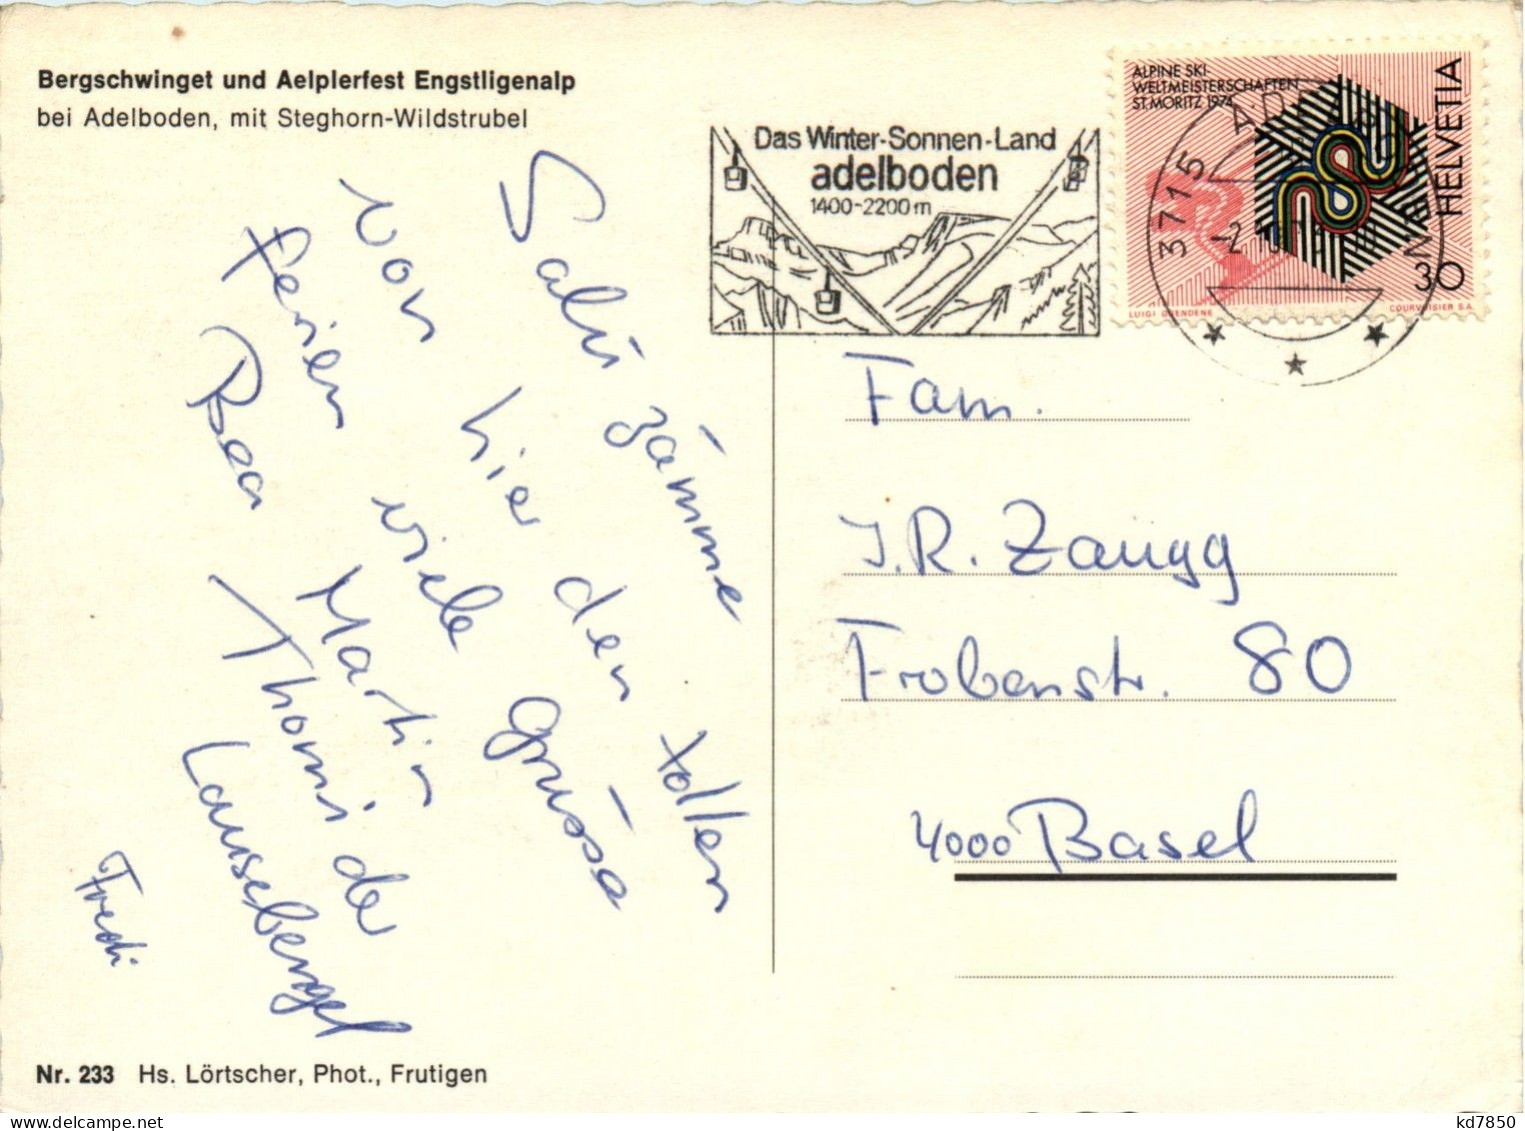 Bergschwinget und Aelplerfest Engstligenalp
bei Adelboden, mit Steghorn-Wildstrubel
Das Winter-Sonnen-Land
adelboden
1400-2200 m
ALPINE SKI-
WELTMEISTERSCHAFTEN
ST. MORITZ 1974
HELVETIA
30
COURVOISIER S.A.
3715
ADELBODEN
Salü zämme
von hier den tollen
Ferien viele Grüsse
Bea Martin
Thomi de
Lausebengel
Fredi
Fam.
J.R. Zaugg
Frobenstr. 80
4000 Basel
Nr. 233 Hs. Lörtscher, Phot., Frutigen
kd7850